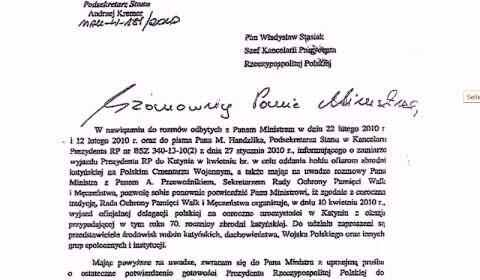 Podsekretarz Stanu
Andrzej Kremer
Pan Władysław Stasiak
Szef Kancelarii Prezydenta
Rzeczypospolitej Polskiej
Szanowny Panie Ministrze,
W nawiązaniu do rozmów odbytych z Panem Ministrem w dniu 22 lutego 2010 r
i 12 lutego 2010 r. oraz do pisma Pana M. Handzlika, Podsekretarza Stanu w Kancelarii
Prezydenta RP nr BSZ 340-13-10(2) z dnia 27 stycznia 2010 r., informującego o zamiarze
wyjazdu Prezydenta RP do Katynia w kwietniu br. w celu oddania hołdu ofiarom zbrodni
katyńskiej na Polskim Cmentarzu Wojennym, a także mając na uwadze rozmowy Pana
Ministra z Panem A. Przewoźnikiem, Sekretarzem Rady Ochrony Pamięci Walk
i Męczeństwa, pozwolę sobie ponownie powiedzieć Panu Ministrowi, iż zgodnie z coroczną
tradycją, Rada Ochrony Pamięci Walk i Męczeństwa organizuje, w dniu 10 kwietnia 2010 r.,
wyjazd oficjalnej delegacji polskiej na coroczne uroczystości w Katyniu z okazji
przypadającej w tym roku 70. rocznicy zbrodni katyńskiej. Do udziału zaproszeni są
przedstawiciele środowisk rodzin katyńskich, duchowieństwa, Wojska Polskiego oraz innych
grup społecznych i instytucji.
Mając powyższe na uwadze, zwracam się do Pana Ministra z uprzejmą prośbą
o ostateczne potwierdzenie gotowości Prezydenta Rzeczypospolitej Polskiej do
Sele